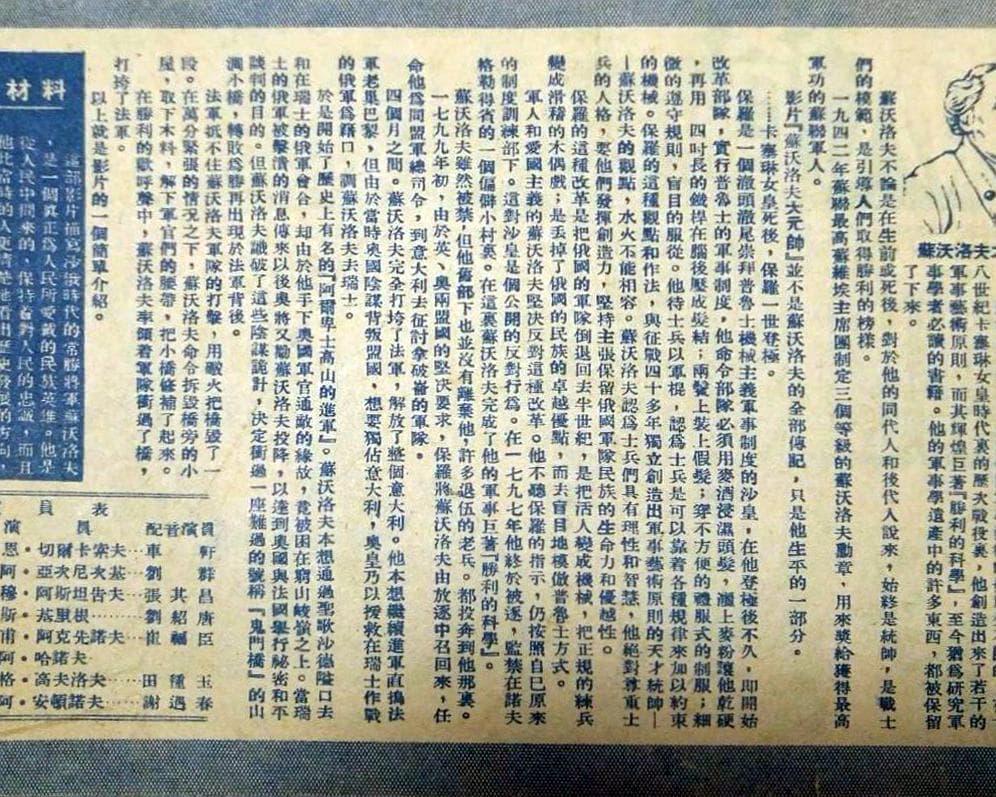 蘇沃洛夫
八世紀卡塞琳女皇時代裏的歷次戰役裏，他創造出來了若干的
軍事藝術原則，而其輝煌巨著『勝利的科學』，至今猶爲研究軍
事學者必讀的書籍。他的軍事學遺產中的許多東西，都被保留
了下來。
蘇沃洛夫不論是在生前或死後，對於他的同代人和後代人說來，始終是統帥，是戰士
們的模範，是引導人們取得勝利的榜樣。
一九四二年蘇聯最高蘇維埃主席團制定三個等級的蘇沃洛夫勳章，用來獎給獲得最高
軍功的蘇聯軍人。
影片『蘇沃洛夫大元帥』並不是蘇沃洛夫的全部傳記，只是他生平的一部分。
……卡塞琳女皇死後，保羅一世登極。
保羅是一個澈頭澈尾崇拜普魯士機械主義軍事制度的沙皇，在他登極後不久，即開始
改革部隊，實行普魯士的軍事制度，他命令部隊必須用麥酒浸濕頭髮，灑上麥粉讓他乾硬
，再用　四吋長的鐵桿在腦後壓成髮結；兩鬢上裝上假髮；穿不方便的禮服式的制服；細
微的遵守規則，盲目的服從。他待士兵以軍棍，認爲士兵是可以靠着各種規律來加以約束
的機械。保羅的這種觀點和作法，與征戰四十多年獨立創造出軍事藝術原則的天才統帥—
—蘇沃洛夫的觀點，水火不能相容。蘇沃洛夫認爲士兵們具有理性和智慧，他絕對尊重士
兵的人格，要他們發揮創造力，堅持主張保留俄國軍隊民族的生命力和優越性。
保羅的這種改革是把俄國的軍隊倒退回去半世紀，是把活人變成機械，把正規的練兵
變成滑稽的木偶戲；是丢掉了俄國的民族的卓越優點，而去盲目地模倣普魯士方式。
軍人和愛國主義的蘇沃洛夫堅決反對這種改革。他不聽保羅的指示，仍按照自己原來
的制度訓練部下。這對沙皇是個公開的反對行爲。在一七九七年他終於被逐，監禁在諾夫
格勒得省的一個偏僻小村裏。在這裏蘇沃洛夫完成了他的軍事巨著『勝利的科學』。
蘇沃洛夫雖然被禁，但他舊部下也並沒有離棄他，許多退伍的老兵。都投奔到他那裏。
一七九九年初，由於英、奧兩盟國的堅決要求，保羅將蘇沃洛夫由放逐中召回來，任
命他爲同盟軍總司令，到意大利去征討拿破崙的軍隊。
四個月之間。蘇沃洛夫完全打垮了法軍，解放了整個意大利。他本想繼續進軍直搗法
軍老巢巴黎，但由於當時奧國陰謀背叛盟國，想要獨佔意大利，奧皇乃以援救在瑞士作戰
的俄軍爲藉口，調蘇沃洛夫去瑞士。
於是開始了歷史上有名的『阿爾卑士高山的進軍』。蘇沃洛夫本想通過聖歌沙德隘口去
和在瑞士的俄軍會合，却由於他手下奧國軍官通敵的緣故，竟被困在窮山峻嶺之上。當瑞
士的俄軍被擊潰的消息傳來以後奧將又勸蘇沃洛夫投降，以達到奧國與法國舉行祕密和平
談判的目的。但蘇沃洛夫識破了這些陰謀詭計，決定衝過一座難過的號稱『鬼門橋』的山
澗小橋，轉敗爲勝再出現於法軍背後。
法軍抵不住蘇沃洛夫軍隊的打擊，用礮火把橋毀了一
段。在萬分緊張的情况之下，蘇沃洛夫命令拆毀橋旁的小
屋，取下木料，解下軍官們的腰帶，把小橋修補了起來。
在勝利的歡呼聲中，蘇沃洛夫率領着軍隊衝過了橋，
打垮了法軍。
以上就是影片的一個簡單介紹。
材料
這部影片描寫沙俄時代的常勝將軍蘇沃洛夫
，是一個眞正爲人民所愛戴的民族英雄。他是
從人民中間來的，保持着對人民的忠誠，而且
員表
演員　配音演員
恩・切爾卡索夫…車軒
阿・亞次尼次基…劉羣
穆・阿斯坦告夫…張其昌
斯・基里根………劉紹唐
甫・阿克先諾夫…崔福臣
阿・哈諾夫
格・高夫洛夫……田種玉
阿・安頓諾夫……謝遇春